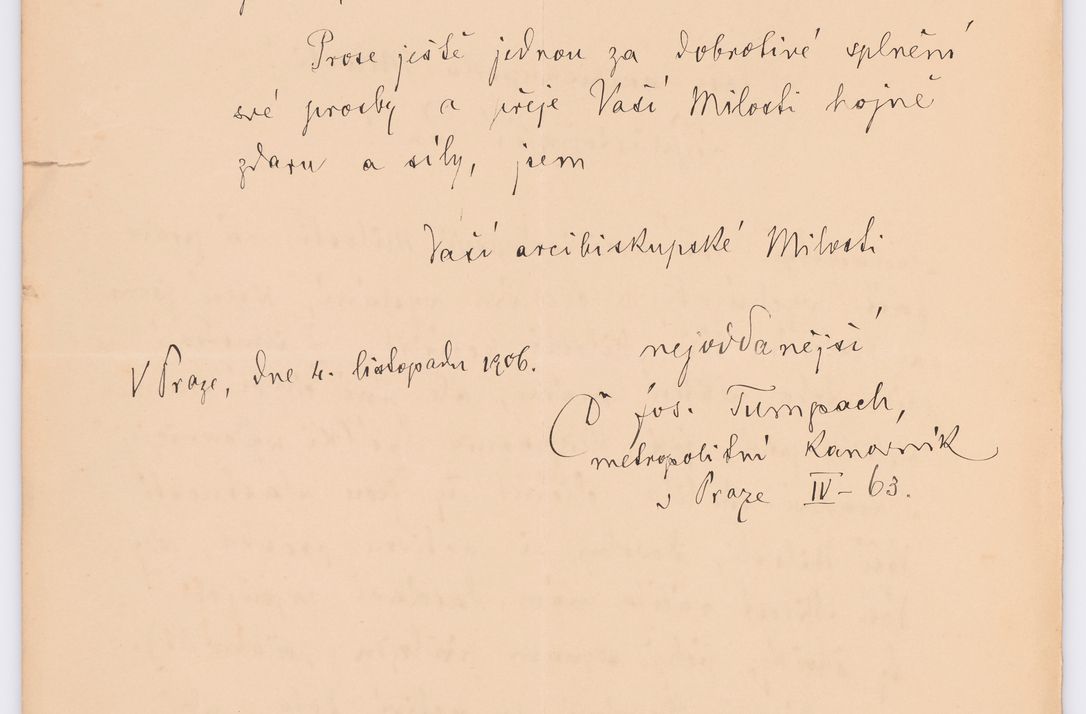 Prose ještě jednou za dobrotivé splnění
své prosby a přeje Vaší Milosti hojně
zdaru a síly, jsem
Vaší arcibiskupské Milosti
nejoddanější
V Praze, dne 4. listopadu 1906.
Dr Jos. Tumpach,
metropolitní kanovník
v Praze IV - 63.